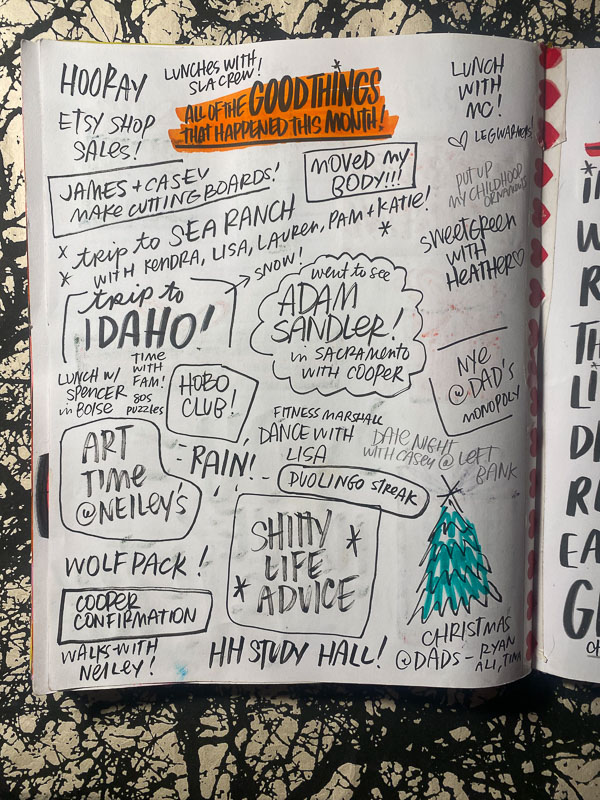 HOORAY
ETSY SHOP
SALES!
LUNCHES WITH
SLA CREW!
ALL OF THE GOOD THINGS
THAT HAPPENED THIS MONTH!
LUNCH
WITH
MC!
♡ LEGWARMERS!
JAMES + CASEY
MAKE CUTTING BOARDS!
MOVED MY
BODY!!!
PUT UP
MY CHILDHOOD
ORNAMENTS
* trip to SEA RANCH
* WITH KENDRA, LISA, LAUREN, PAM + KATIE! *
SWEETGREEN
WITH
HEATHER ♡
trip to
IDAHO!
→ SNOW!
went to see
ADAM
SANDLER!
in SACRAMENTO
WITH COOPER
NYE
@ DAD'S
MONOPOLY
LUNCH W/
SPENCER
in BOISE
TIME
WITH
FAM!
80S
PUZZLES
HOBO
CLUB!
FITNESS MARSHALL
DANCE WITH
LISA
DATE NIGHT
WITH CASEY @ LEFT
BANK
ART
TIME
@ NEILEY'S
- RAIN! -
DUOLINGO STREAK
WOLF PACK!
* SHITTY
LIFE
ADVICE *
COOPER
CONFIRMATION
WALKS WITH
NEILEY!
HH STUDY HALL!
CHRISTMAS
@ DADS - RYAN
ALI, TINA